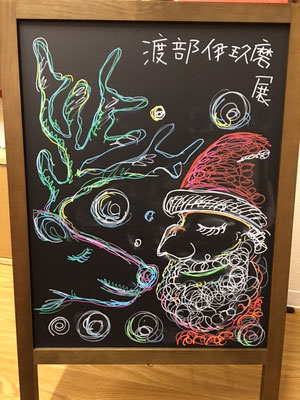 渡部伊玖磨
展